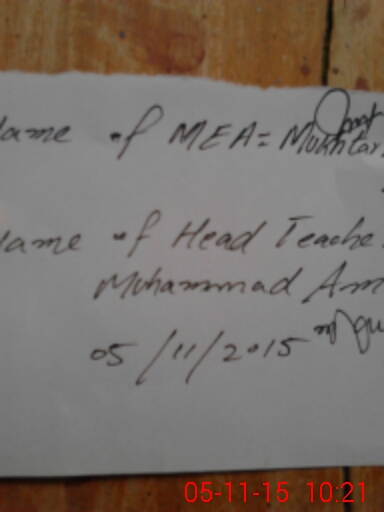 Name of MEA = Mukhtar
Name of Head Teache
Muhammad Am
05/11/2015
05-11-15 10:21